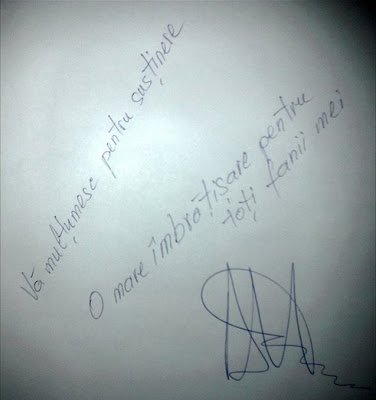 Vă mulțumesc pentru susținere
O mare îmbrățișare pentru
toți fanii mei